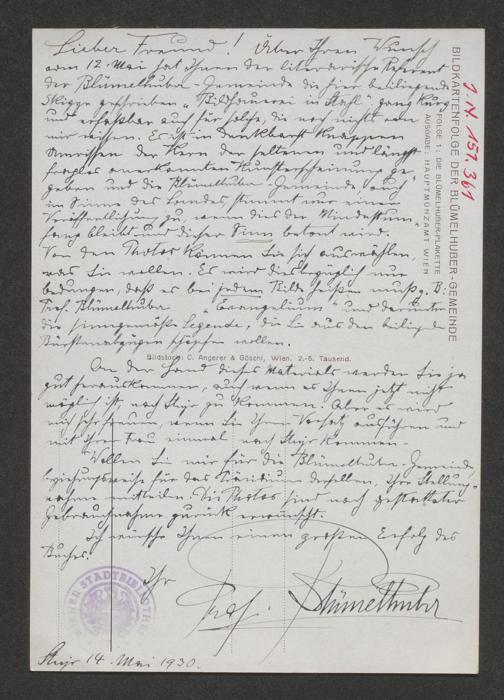 Lieber Freund! Über Ihren Wunsch
vom 12. Mai hat Ihnen der literarische Referent
der Blümelhuber-Gemeinde die hier beiliegende
Skizze geschrieben „Bildhauerei in Stahl" ganz kurz
und erfaßbar auch für solche, die noch nichts von
mir wissen. Es ist in denkbarst knappen
Umrissen der Kern der seltenen und längst
fraglos anerkannten Kunsterscheinung ge-
geben und die Blümelhuber-Gemeinde, auch
im Sinne des Bundes, stimmt nur einer
Veröffentlichung zu, wenn dies der Mindestum-
fang bleibt und dieser Sinn betont wird.
Von den Photos können Sie sich auswählen,
was Sie wollen. Es wird diesbezüglich nur
bedungen, daß es bei jedem Bilde heißen muß z. B.
Prof. Blümelhuber „Evangelium" und darunter
die sinngemäße Legende, die Sie aus den beiliegenden
Bürstenabzügen schöpfen wollen.
Bildstock: C. Angerer & Göschl, Wien. 2.-5. Tausend.
An der Hand dieses Materials werden Sie ja
gut herauskommen, auch wenn es Ihnen jetzt nicht
möglich ist, nach Steyr zu kommen. Aber es wird
mich sehr freuen, wenn Sie Ihren Vorsatz ausführen und
mit Ihrer Frau einmal nach Steyr kommen.
Wollen Sie mir für die Blümelhuber-Gemeinde,
beziehungsweise für das derselben, Ihre Stellung-
nahme mitteilen. Die Photos sind nach gestatteter
Gebrauchnahme zurück erwünscht.
Ich wünsche Ihnen einen größten Erfolg des
Buches.
Ihr
Prof. Blümelhuber
Steyr 14. Mai 1930.
BILDKARTENFOLGE DER BLÜMELHUBER-GEMEINDE
FOLGE 1: DIE BLÜMELHUBER-PLAKETTE
AUSGABE: HAUPTMÜNZAMT WIEN
J. N. 151.361
WIENER STADTBIBLIOTHEK